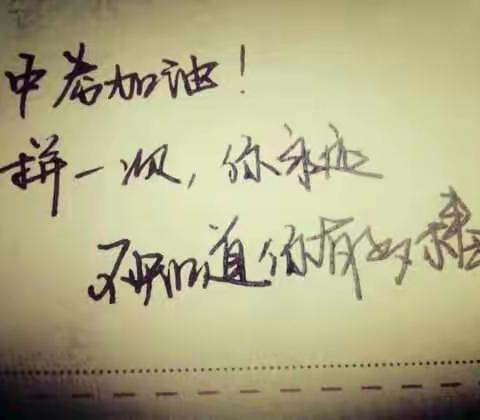 中考加油！
拼一次，你永远
不知道你有多